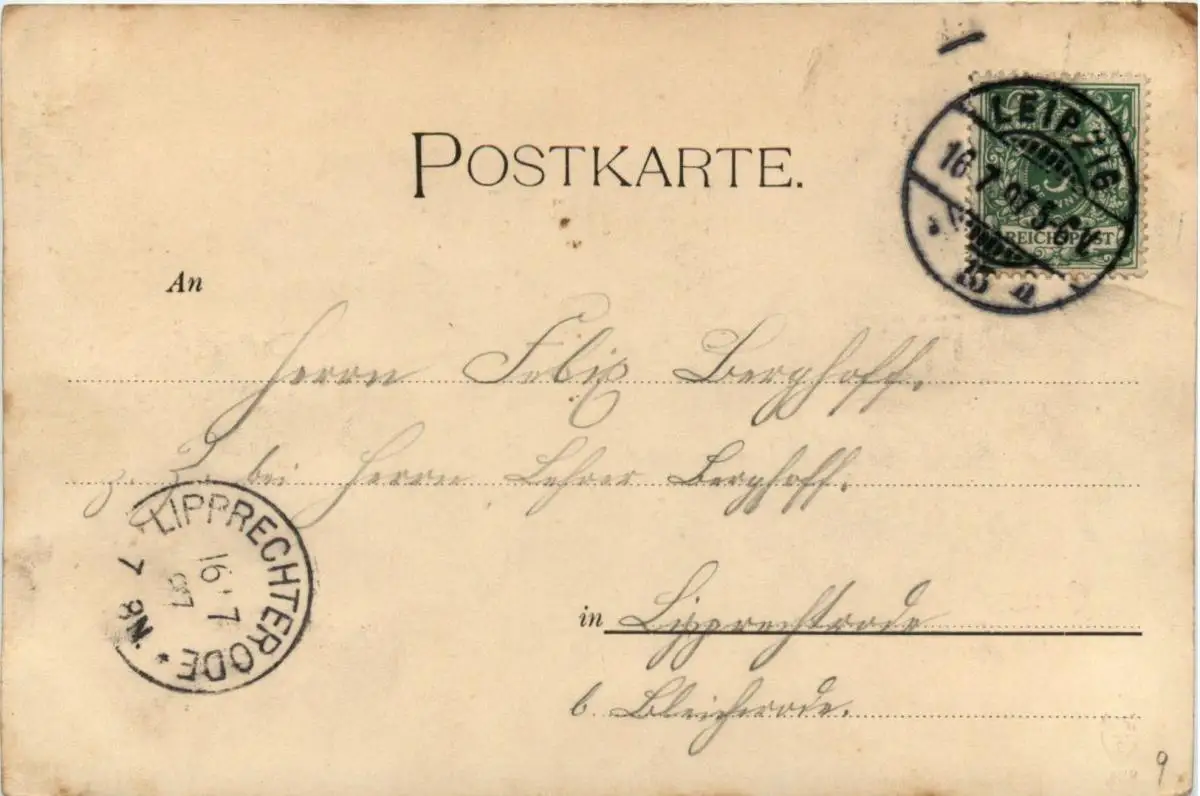 POSTKARTE.
LEIPZIG
16.7.97.5-6V.
PFENNIG
REICHSPOST
An
Herrn Felix Berghoff.
z. Z. bei Herrn Lehrer Berghoff.
LIPPRECHTERODE *
16.7
97
7-8N.
in Lipprechtrode
b. Bleicherode.
9